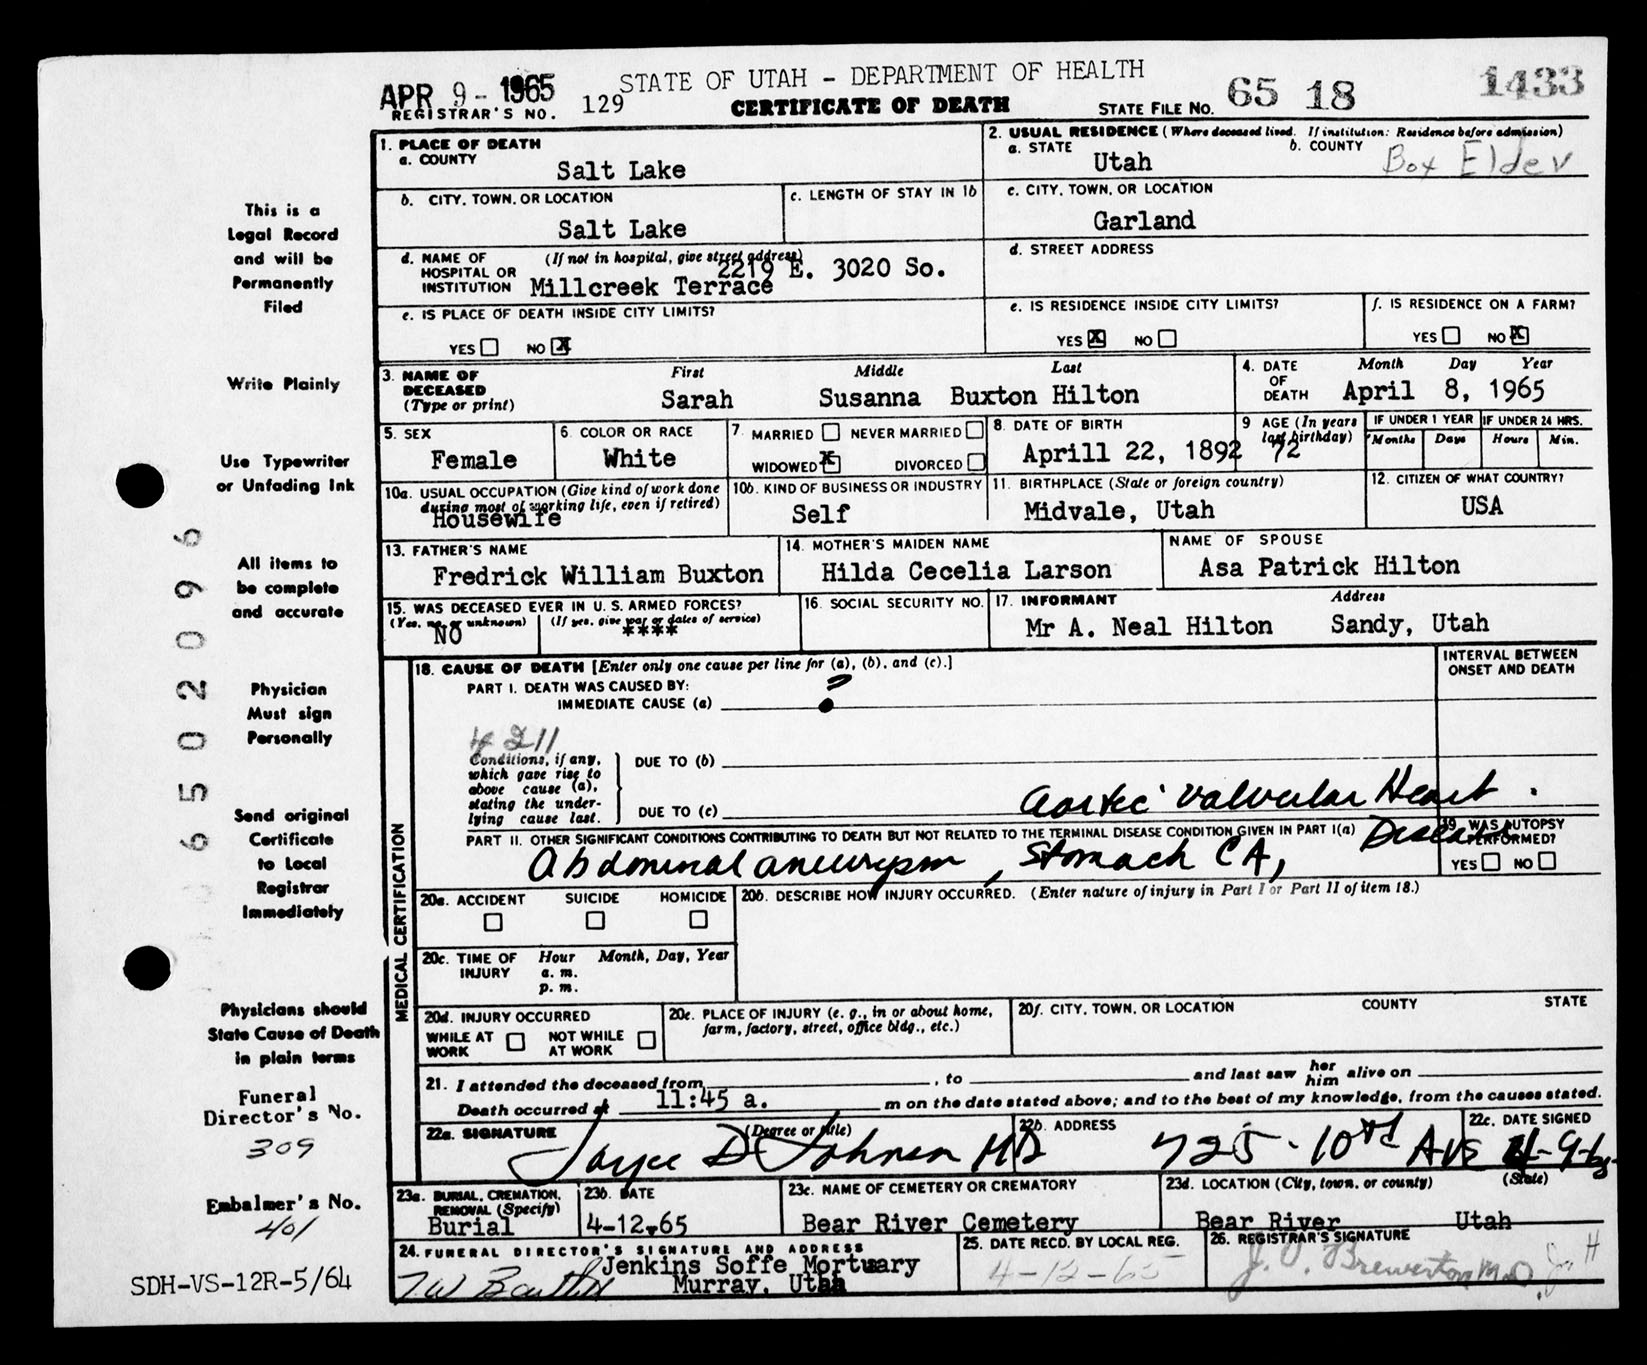 STATE OF UTAH - DEPARTMENT OF HEALTH
APR 9 - 1965
REGISTRAR'S NO. 129
CERTIFICATE OF DEATH
STATE FILE NO. 65 18 1433
1. PLACE OF DEATH
a. COUNTY
Salt Lake
2. USUAL RESIDENCE (Where deceased lived. If institution: Residence before admission)
a. STATE
Utah
b. COUNTY
Box Elder
b. CITY, TOWN, OR LOCATION
Salt Lake
c. LENGTH OF STAY IN 1b
c. CITY, TOWN, OR LOCATION
Garland
d. NAME OF HOSPITAL OR INSTITUTION
(If not in hospital, give street address)
2219 E. 3020 So.
Millcreek Terrace
d. STREET ADDRESS
e. IS PLACE OF DEATH INSIDE CITY LIMITS?
YES NO X
e. IS RESIDENCE INSIDE CITY LIMITS?
YES X NO
f. IS RESIDENCE ON A FARM?
YES NO X
3. NAME OF DECEASED
(Type or print)
First Middle Last
Sarah Susanna Buxton Hilton
4. DATE OF DEATH
Month Day Year
April 8, 1965
5. SEX
Female
6. COLOR OR RACE
White
7. MARRIED NEVER MARRIED
WIDOWED X DIVORCED
8. DATE OF BIRTH
Aprill 22, 1892
9 AGE (In years last birthday)
72
IF UNDER 1 YEAR
Months Days
IF UNDER 24 HRS.
Hours Min.
10a. USUAL OCCUPATION (Give kind of work done during most of working life, even if retired)
Housewife
10b. KIND OF BUSINESS OR INDUSTRY
Self
11. BIRTHPLACE (State or foreign country)
Midvale, Utah
12. CITIZEN OF WHAT COUNTRY?
USA
13. FATHER'S NAME
Fredrick William Buxton
14. MOTHER'S MAIDEN NAME
Hilda Cecelia Larson
NAME OF SPOUSE
Asa Patrick Hilton
15. WAS DECEASED EVER IN U. S. ARMED FORCES?
(Yes, no, or unknown) (If yes, give war or dates of service)
NO ****
16. SOCIAL SECURITY NO.
17. INFORMANT Address
Mr A. Neal Hilton Sandy, Utah
MEDICAL CERTIFICATION
18. CAUSE OF DEATH [Enter only one cause per line for (a), (b), and (c).]
INTERVAL BETWEEN ONSET AND DEATH
PART I. DEATH WAS CAUSED BY:
IMMEDIATE CAUSE (a) ?
4211
Conditions, if any, which gave rise to above cause (a), stating the underlying cause last.
DUE TO (b)
DUE TO (c) Aortic valvular Heart
Disease
PART II. OTHER SIGNIFICANT CONDITIONS CONTRIBUTING TO DEATH BUT NOT RELATED TO THE TERMINAL DISEASE CONDITION GIVEN IN PART I(a)
Abdominal aneurysm, Stomach CA,
19. WAS AUTOPSY PERFORMED?
YES NO
20a. ACCIDENT SUICIDE HOMICIDE
20b. DESCRIBE HOW INJURY OCCURRED. (Enter nature of injury in Part I or Part II of item 18.)
20c. TIME OF INJURY
Hour Month, Day, Year
a. m.
p. m.
20d. INJURY OCCURRED
WHILE AT WORK NOT WHILE AT WORK
20e. PLACE OF INJURY (e. g., in or about home, farm, factory, street, office bldg., etc.)
20f. CITY, TOWN, OR LOCATION COUNTY STATE
21. I attended the deceased from , to and last saw her him alive on
Death occurred at 11:45 a. m on the date stated above; and to the best of my knowledge, from the causes stated.
22a. SIGNATURE (Degree or title)
Joyce D Johnson MD
22b. ADDRESS
725 - 10th Ave
22c. DATE SIGNED
4-9-65
23a. BURIAL, CREMATION, REMOVAL (Specify)
Burial
23b. DATE
4-12-65
23c. NAME OF CEMETERY OR CREMATORY
Bear River Cemetery
23d. LOCATION (City, town, or county) (State)
Bear River Utah
24. FUNERAL DIRECTOR'S SIGNATURE AND ADDRESS
Jenkins Soffe Mortuary
Murray, Utah
25. DATE RECD. BY LOCAL REG.
4-12-65
26. REGISTRAR'S SIGNATURE
J. O. Brewerton M.D.
This is a
Legal Record
and will be
Permanently
Filed
Write Plainly
Use Typewriter
or Unfading Ink
All items to
be complete
and accurate
Physician
Must sign
Personally
Send original
Certificate
to Local
Registrar
Immediately
Physicians should
State Cause of Death
in plain terms
Funeral
Director's No.
309
Embalmer's No.
401
SDH-VS-12R-5/64
6502096